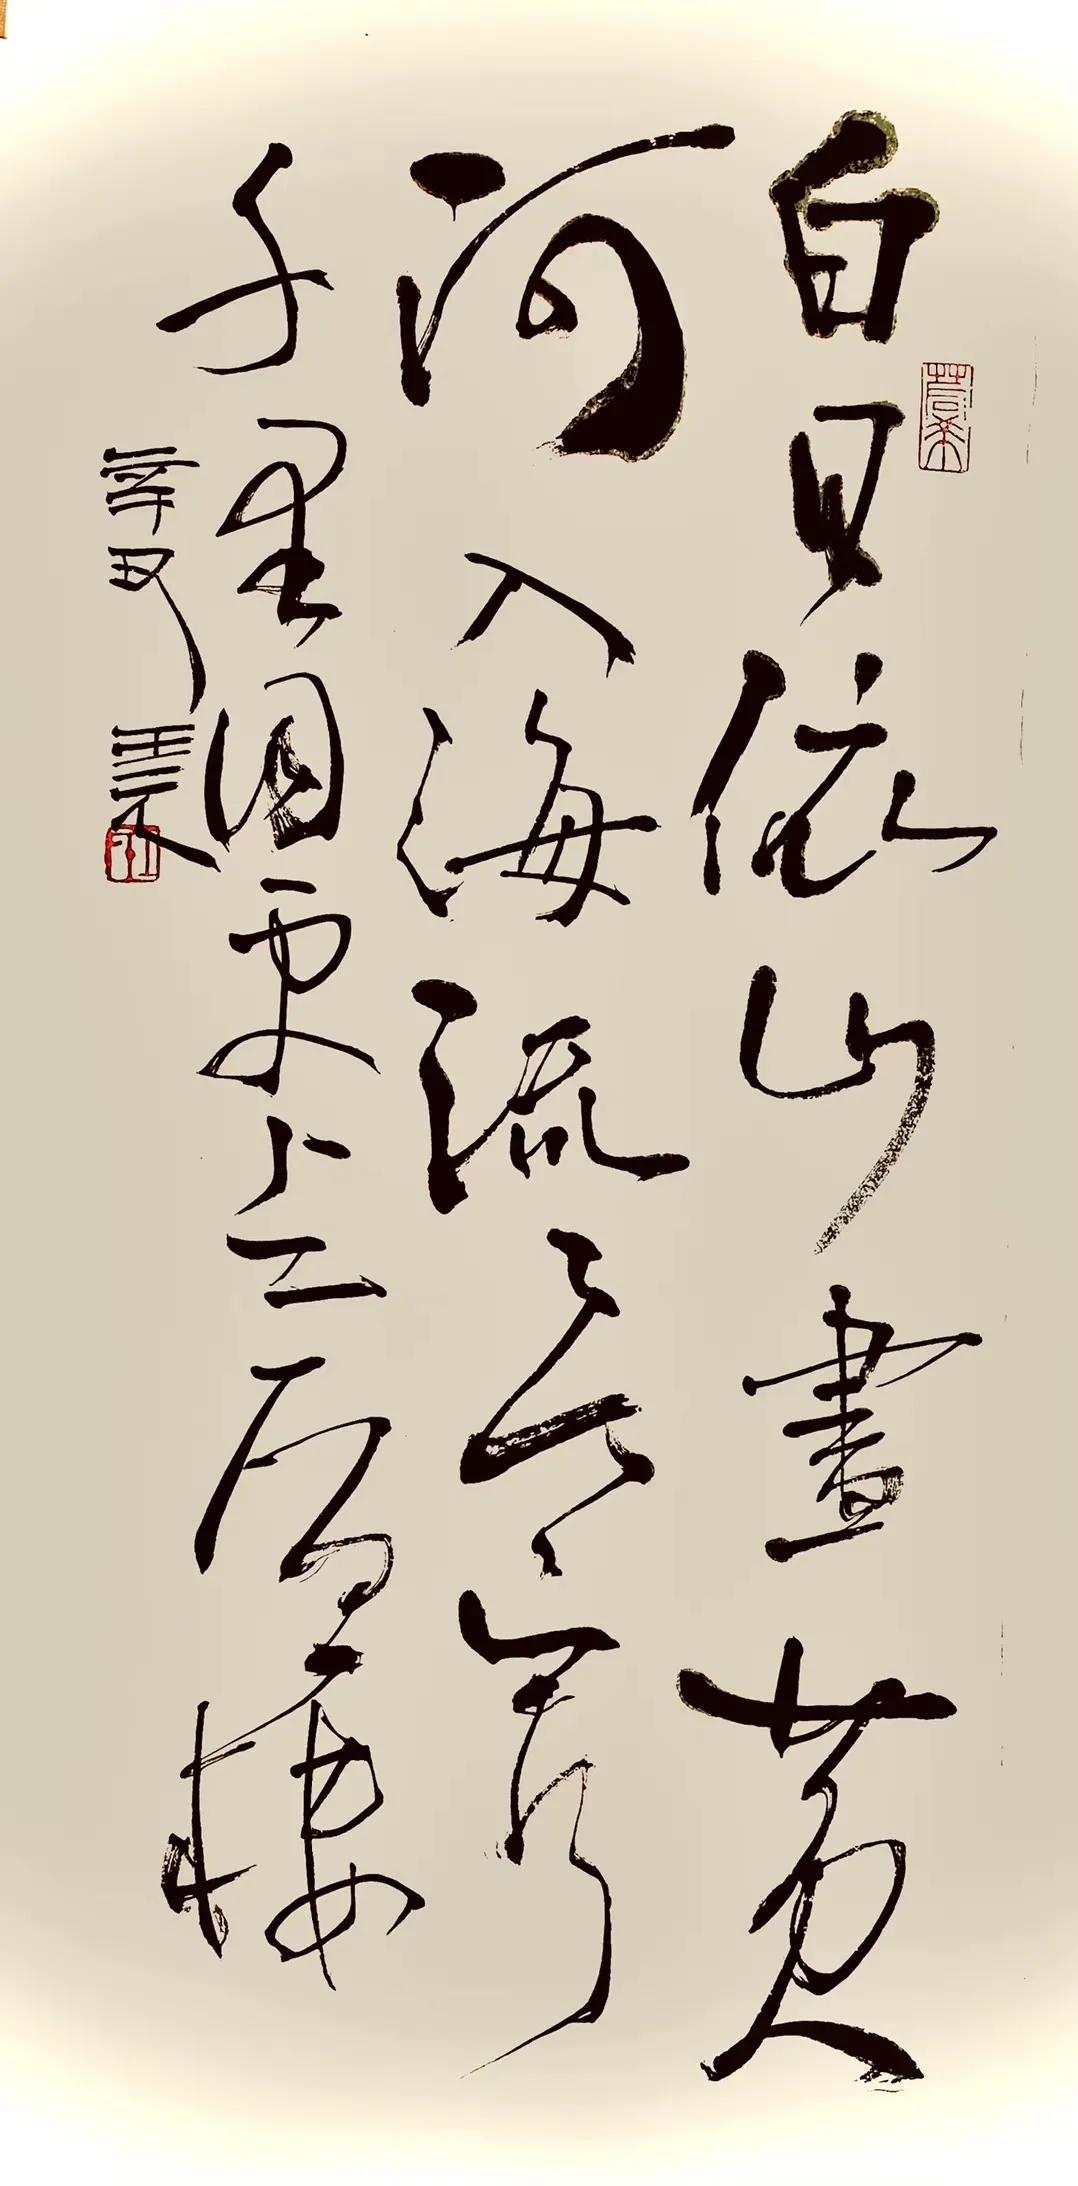 白日依山盡黄
河入海流欲窮
千里目更上一層樓
辛丑